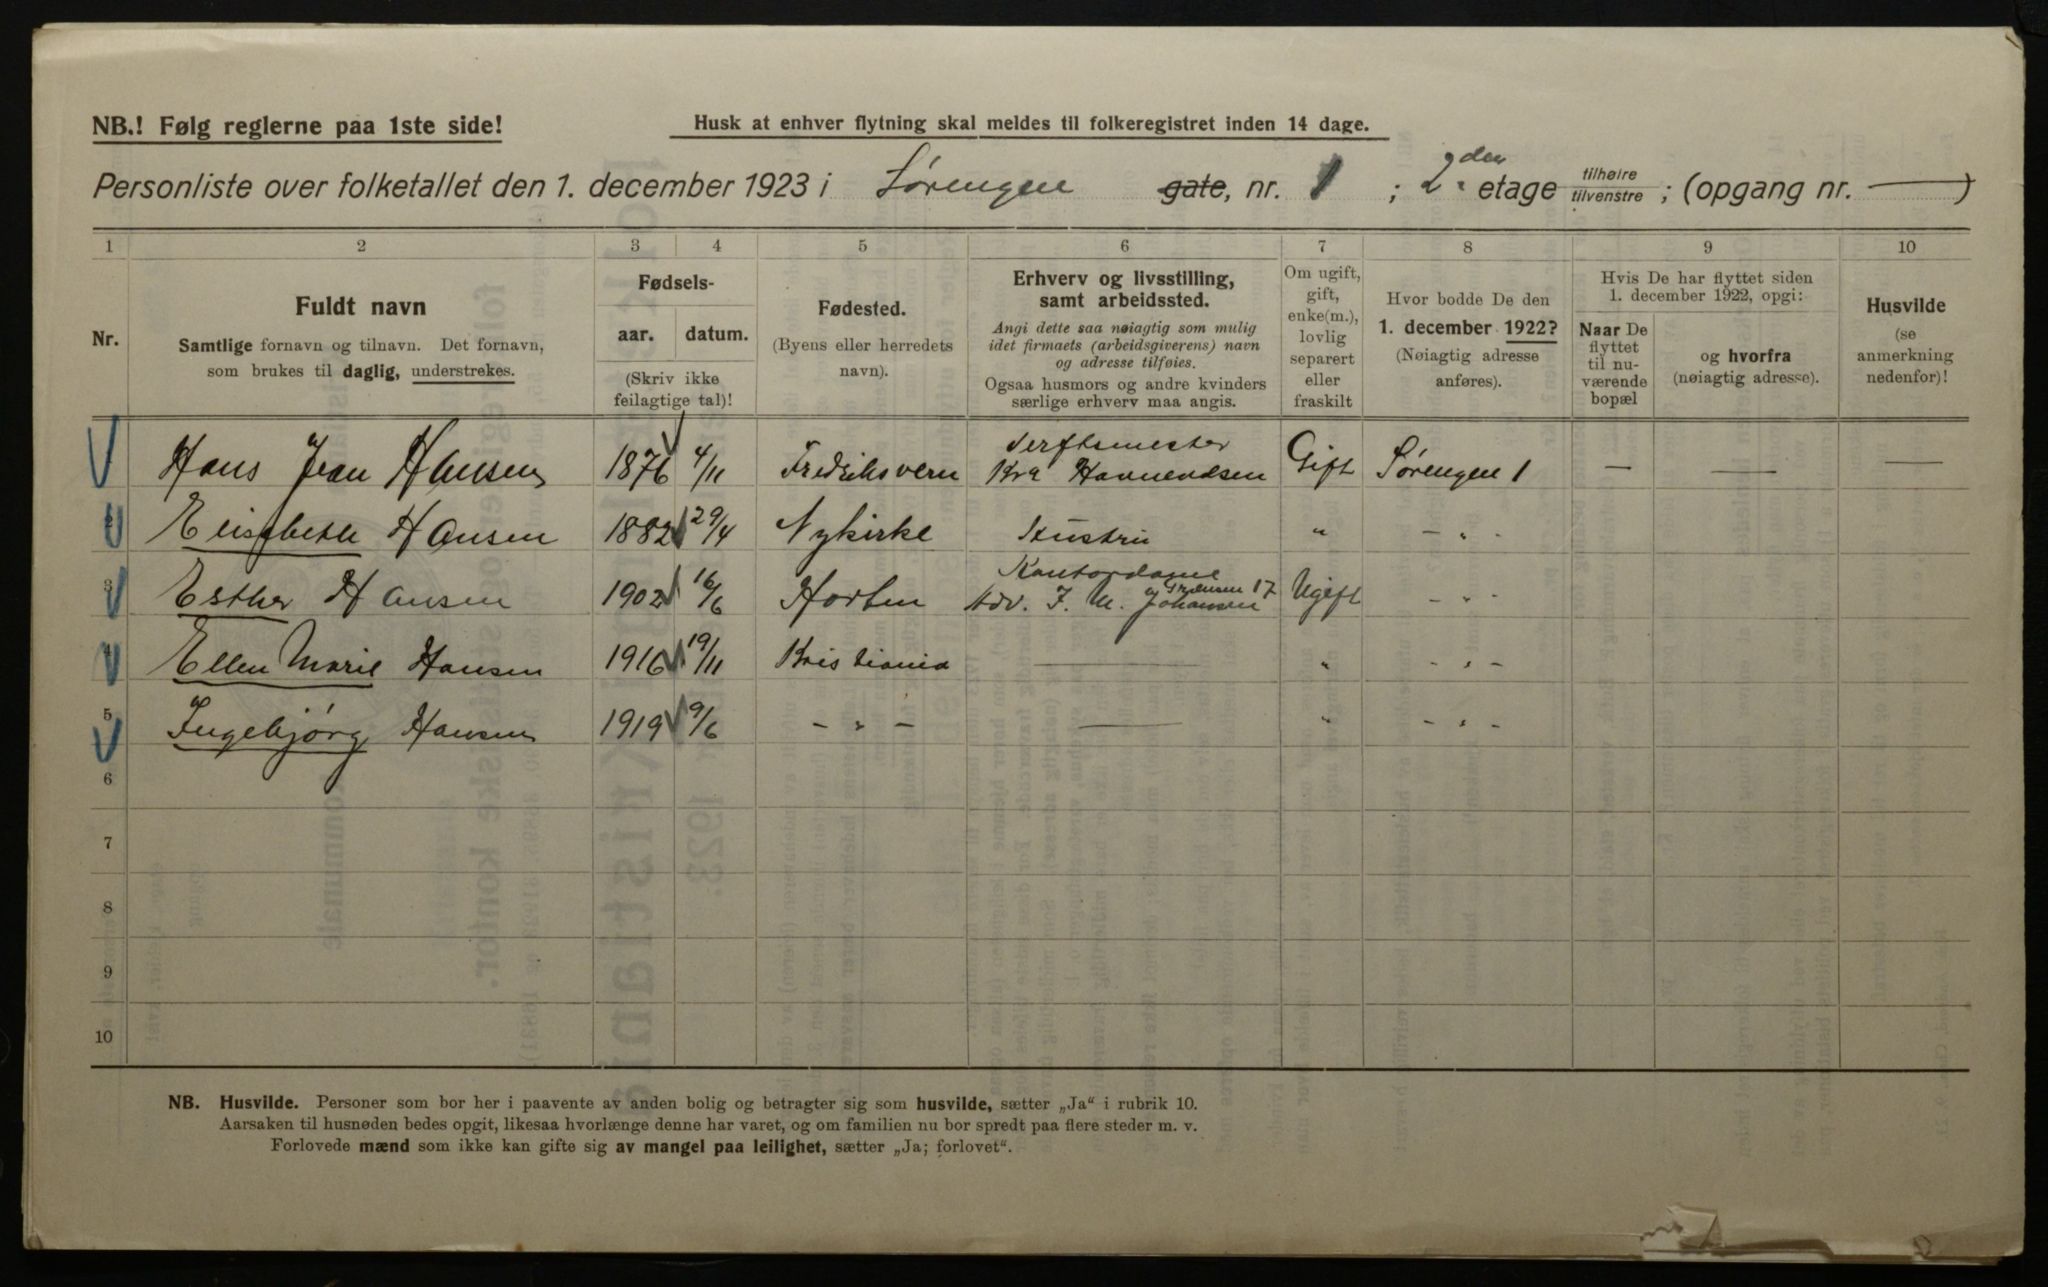 NB.! Følg reglerne paa 1ste side!
Husk at enhver flytning skal meldes til folkeregistret inden 14 dage.
Personliste over folketallet den 1. december 1923 i Sørengen gate, nr. 1 ; 2den etage tilhøire tilvenstre ; (opgang nr. — )
1 2 3 4 5 6 7 8 9 10
Nr.
Fuldt navn
Samtlige fornavn og tilnavn. Det fornavn,
som brukes til daglig, understrekes.
Fødsels-
aar. datum.
(Skriv ikke
feilagtige tal)!
Fødested.
(Byens eller herredets
navn).
Erhverv og livsstilling,
samt arbeidssted.
Angi dette saa nøiagtig som mulig
idet firmaets (arbeidsgiverens) navn
og adresse tilføies.
Ogsaa husmors og andre kvinders
særlige erhverv maa angis.
Om ugift,
gift,
enke(m.),
lovlig
separert
eller
fraskilt
Hvor bodde De den
1. december 1922?
(Nøiagtig adresse
anføres).
Hvis De har flyttet siden
1. december 1922, opgi:
Naar De
flyttet
til nu-
værende
bopæl
og hvorfra
(nøiagtig adresse).
Husvilde
(se
anmerkning
nedenfor)!
Hans Jean Hansen 1876 4/11 Fredriksvern Kra Havnevæsen Gift Sørengen 1 — — —
2 Elisabeth Hansen 1882 29/4 Nykirke Hustru " — " -
3 Esther Hansen 1902 16/6 Horten Kontordame
Adv. J. M. Johansen Ugift — " -
4 Ellen Marie Hansen 1916 19/11 Kristiania — " - " -
5 Ingebjørg Hansen 1919 9/6 — " — — " — " -
6
7
8
9
10
NB. Husvilde. Personer som bor her i paavente av anden bolig og betragter sig som husvilde, sætter „Ja“ i rubrik 10.
Aarsaken til husnøden bedes opgit, likesaa hvorlænge denne har varet, og om familien nu bor spredt paa flere steder m. v.
Forlovede mænd som ikke kan gifte sig av mangel paa leilighet, sætter „Ja; forlovet“.